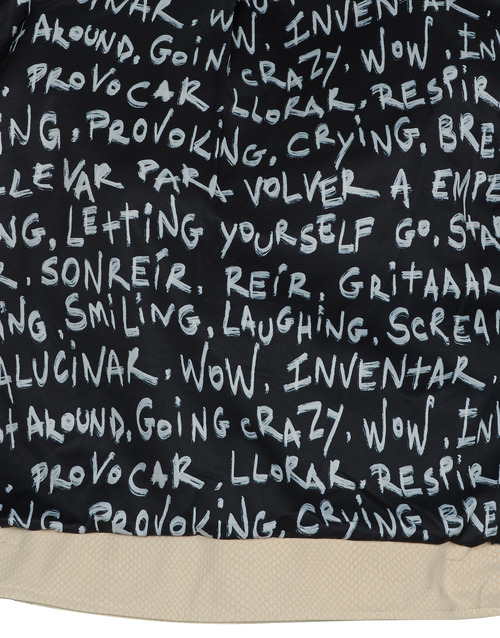 LLORAR, WOW, INVENTAR,
AROUND, GOING CRAZY, WOW, IN
, PROVOCAR, LLORAR, RESPIR
ING, PROVOKING, CRYING, BRE
LLEVAR PARA VOLVER A EMPE
NG, LETTING YOURSELF GO, STA
R, SONREÍR, REÍR, GRITAAAR
ING, SMILING, LAUGHING, SCREA
ALUCINAR, WOW, INVENTAR,
AROUND, GOING CRAZY, WOW, IN
, PROVOCAR, LLORAR, RESPIR
NG, PROVOKING, CRYING, BRE